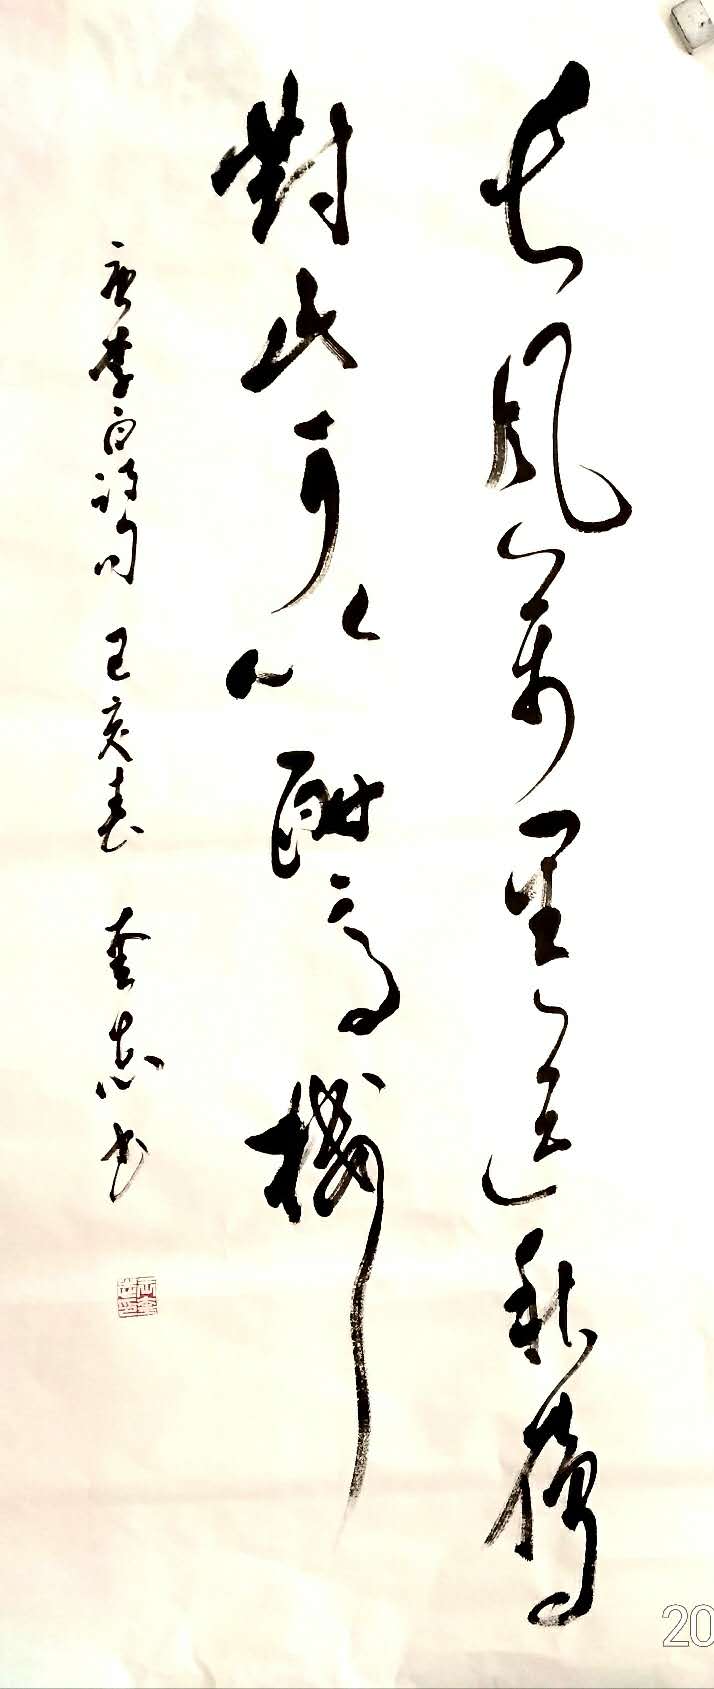 長風萬里送秋雁
對此可以酣高樓
唐李白诗句 己亥春 奎志书
20